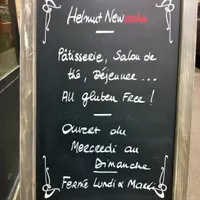 Helmut Newcake
Pâtisserie, Salon de
thé, Déjeuner ...
All gluten Free !
Ouvert du
Mercredi au
Dimanche
Fermé Lundi & Mardi